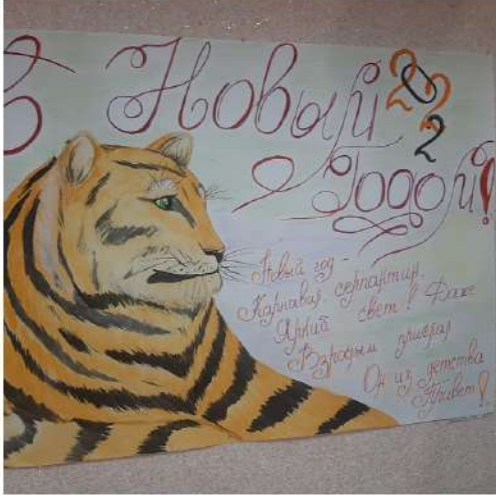 С Новым 2022
Годом!
Новый год -
Карнавал, серпантин,
Яркий свет! Даже
Взрослым прислал
Он из детства
Привет!